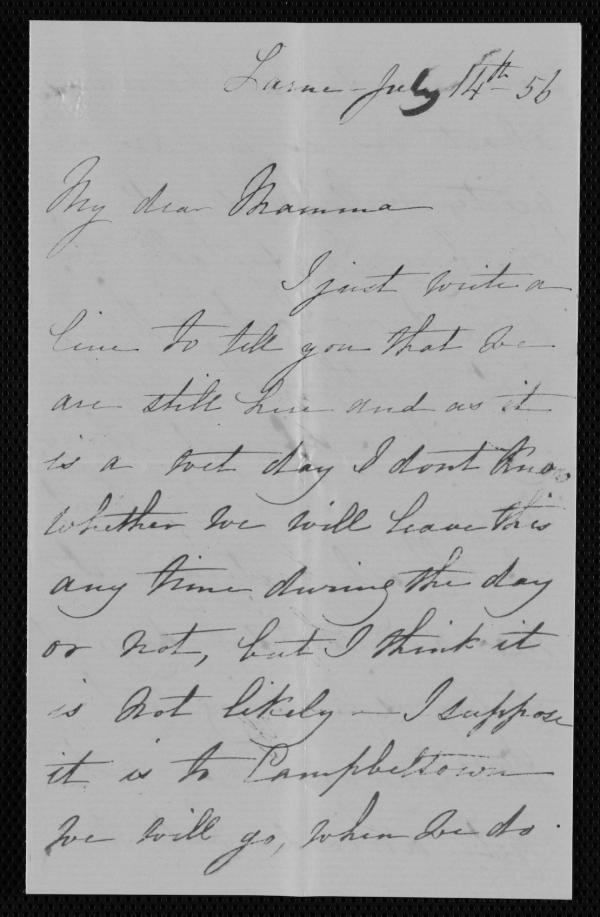 Larne - July 14th - 56
My dear Mamma
I just write a
line to tell you that we
are still here and as it
is a wet day I dont know
whether we will leave this
any time during the day
or not, but I think it
is not likely — I suppose
it is to Campbeltown
we will go, when we do.